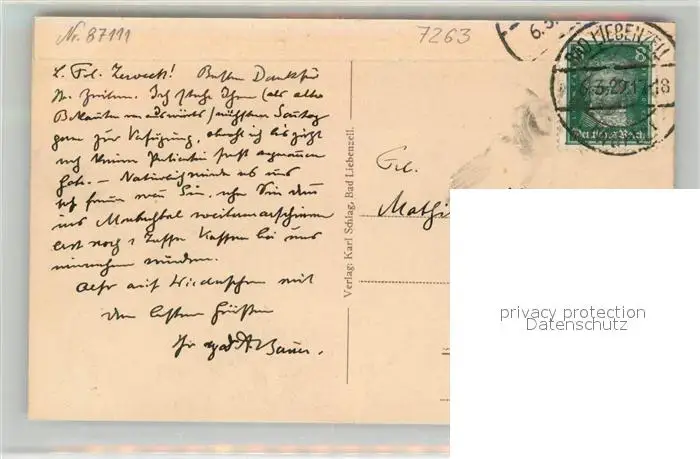 Nr. 87111
7263
L. Frl. Zerweck! Besten Dank für
Ihre Zeilen. Ich stehe Ihnen (als alte
Bekannte von auswärts) nächsten Sonntag
gern zur Verfügung, obwohl ich bis jetzt
noch keinen Patienten fest angenommen
habe. – Natürlich würde es uns
sehr freuen wenn Sie, ehe Sie dann
ins Monbachtal weitermarschieren
erst noch 1 Tasse Kaffee bei uns
einnehmen würden.
Also auf Wiedersehen mit
den besten Grüßen
Ihr
A. Bauer.
Verlag: Karl Schlag, Bad Liebenzell.
Frl.
BAD LIEBENZELL
6.3.29.17-18
8
Deutsches Reich
privacy protection
Datenschutz